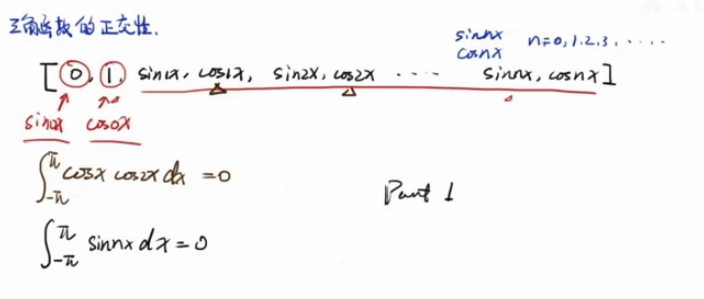 三角函数的正交性.
sinnx
cosnx n=0,1.2.3,·····
[0,1, sin1x, cos1x, sin2x, cos2x ···· sinnx, cosnx]
sin0x cos0x
∫_{-π}^{π} cosx cos2x dx =0
Part 1
∫_{-π}^{π} sinnx dx=0